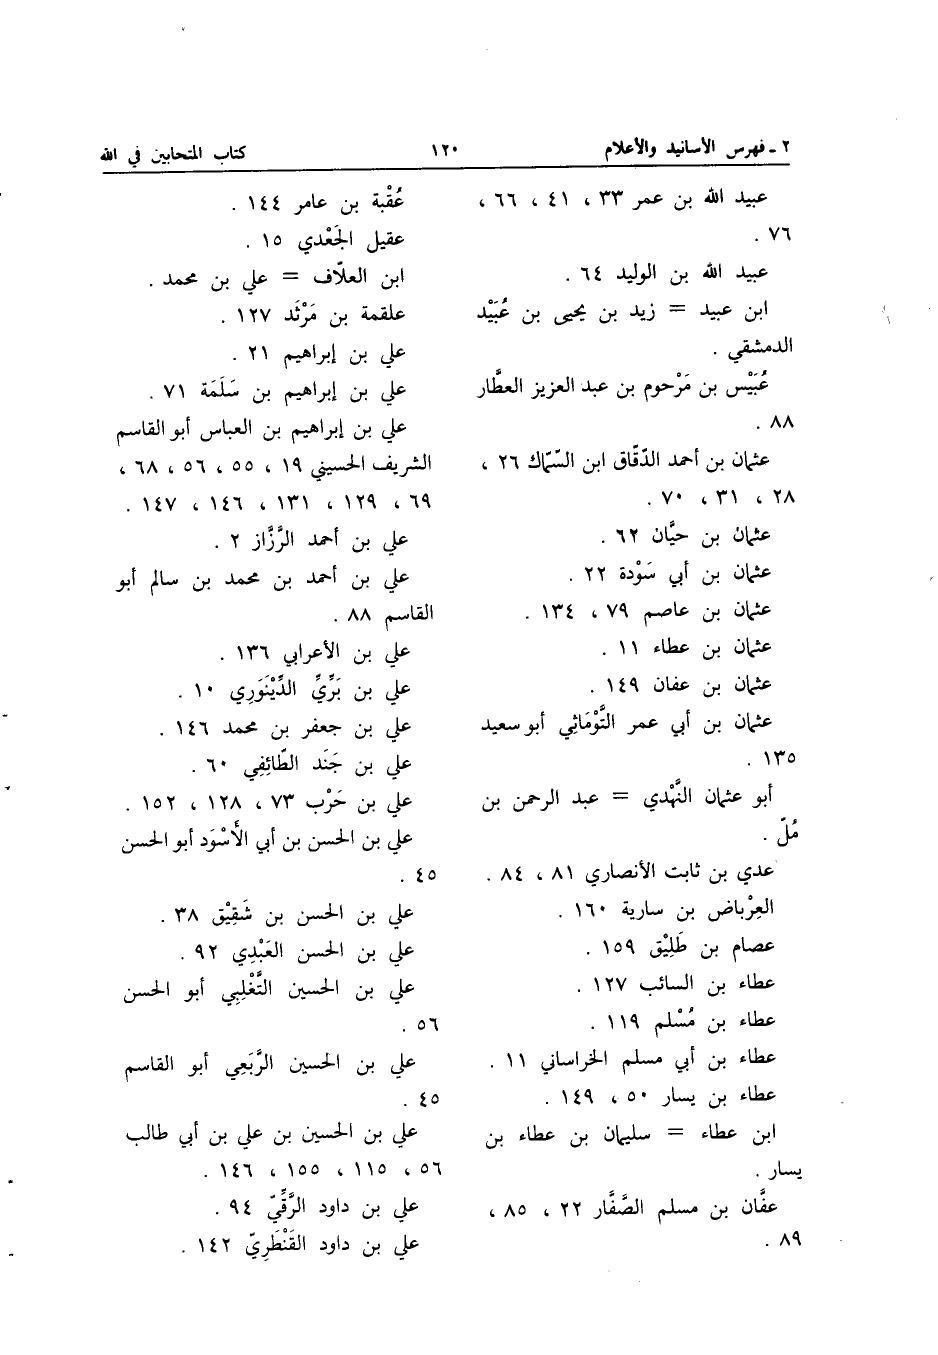 ٢ ـ فهرس الأسانيد والأعلام ١٢٠ كتاب المتحابين في الله
عبيد الله بن عمر ٣٣ ، ٤١ ، ٦٦ ،
٧٦ .
عبيد الله بن الوليد ٦٤ .
ابن عبيد = زيد بن يحيى بن عُبَيْد
الدمشقي .
عُبَيْس بن مَرْحوم بن عبد العزيز العطَّار
٨٨ .
عثمان بن أحمد الدّقّاق ابن السّمّاك ٢٦ ،
٢٨ ، ٣١ ، ٧٠ .
عثمان بن حيَّان ٦٢ .
عثمان بن أبي سَوْدة ٢٢ .
عثمان بن عاصم ٧٩ ، ١٣٤ .
عثمان بن عطاء ١١ .
عثمان بن عفان ١٤٩ .
عثمان بن أبي عمر التَّوْمَاثِي أبو سعيد
١٣٥ .
أبو عثمان النَّهْدي = عبد الرحمن بن
مُلّ .
عدي بن ثابت الأنصاري ٨١ ، ٨٤ .
العِرْباض بن سارية ١٦٠ .
عصام بن طَلِيْق ١٥٩ .
عطاء بن السائب ١٢٧ .
عطاء بن مُسْلم ١١٩ .
عطاء بن أبي مسلم الخراساني ١١ .
عطاء بن يسار ٥٠ ، ١٤٩ .
ابن عطاء = سليمان بن عطاء بن
يسار .
عفَّان بن مسلم الصَّفَّار ٢٢ ، ٨٥ ،
٨٩ .
عُقْبة بن عامر ١٤٤ .
عقيل الجَعْدي ١٥ .
ابن العلاّف = علي بن محمد .
علقمة بن مَرْثَد ١٢٧ .
علي بن إبراهيم ٢١ .
علي بن إبراهيم بن سَلَمَة ٧١ .
علي بن إبراهيم بن العباس أبو القاسم
الشريف الحسيني ١٩ ، ٥٥ ، ٥٦ ، ٦٨ ،
٦٩ ، ١٢٩ ، ١٣١ ، ١٤٦ ، ١٤٧ .
علي بن أحمد الرَّزَّاز ٢ .
علي بن أحمد بن محمد بن سالم أبو
القاسم ٨٨ .
علي بن الأعرابي ١٣٦ .
علي بن بَرِّيِّ الدِّيْنَوَرِي ١٠ .
علي بن جعفر بن محمد ١٤٦ .
علي بن جَنَد الطّائِفِي ٦٠ .
علي بن حَرْب ٧٣ ، ١٢٨ ، ١٥٢ .
علي بن الحسن بن أبي الأَسْوَد أبو الحسن
٤٥ .
علي بن الحسن بن شَقِيْق ٣٨ .
علي بن الحسن العَبْدِي ٩٢ .
علي بن الحسين التَّغْلِبِي أبو الحسن
٥٦ .
علي بن الحسين الرَّبَعِي أبو القاسم
٤٥ .
علي بن الحسين بن علي بن أبي طالب
٥٦ ، ١١٥ ، ١٥٥ ، ١٤٦ .
علي بن داود الرَّقِّيّ ٩٤ .
علي بن داود القَنْطَرِيّ ١٤٢ .